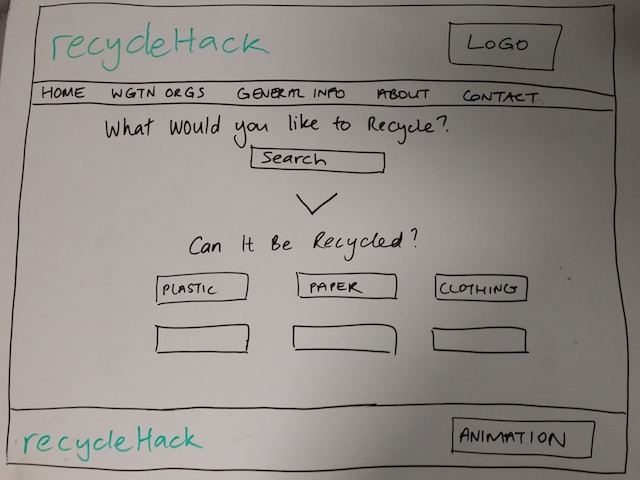 recycleHack
LOGO
HOME WGTN ORGS GENERAL INFO ABOUT CONTACT
What Would you like to Recycle?
Search
Can It Be Recycled?
PLASTIC PAPER CLOTHING
recycleHack
ANIMATION